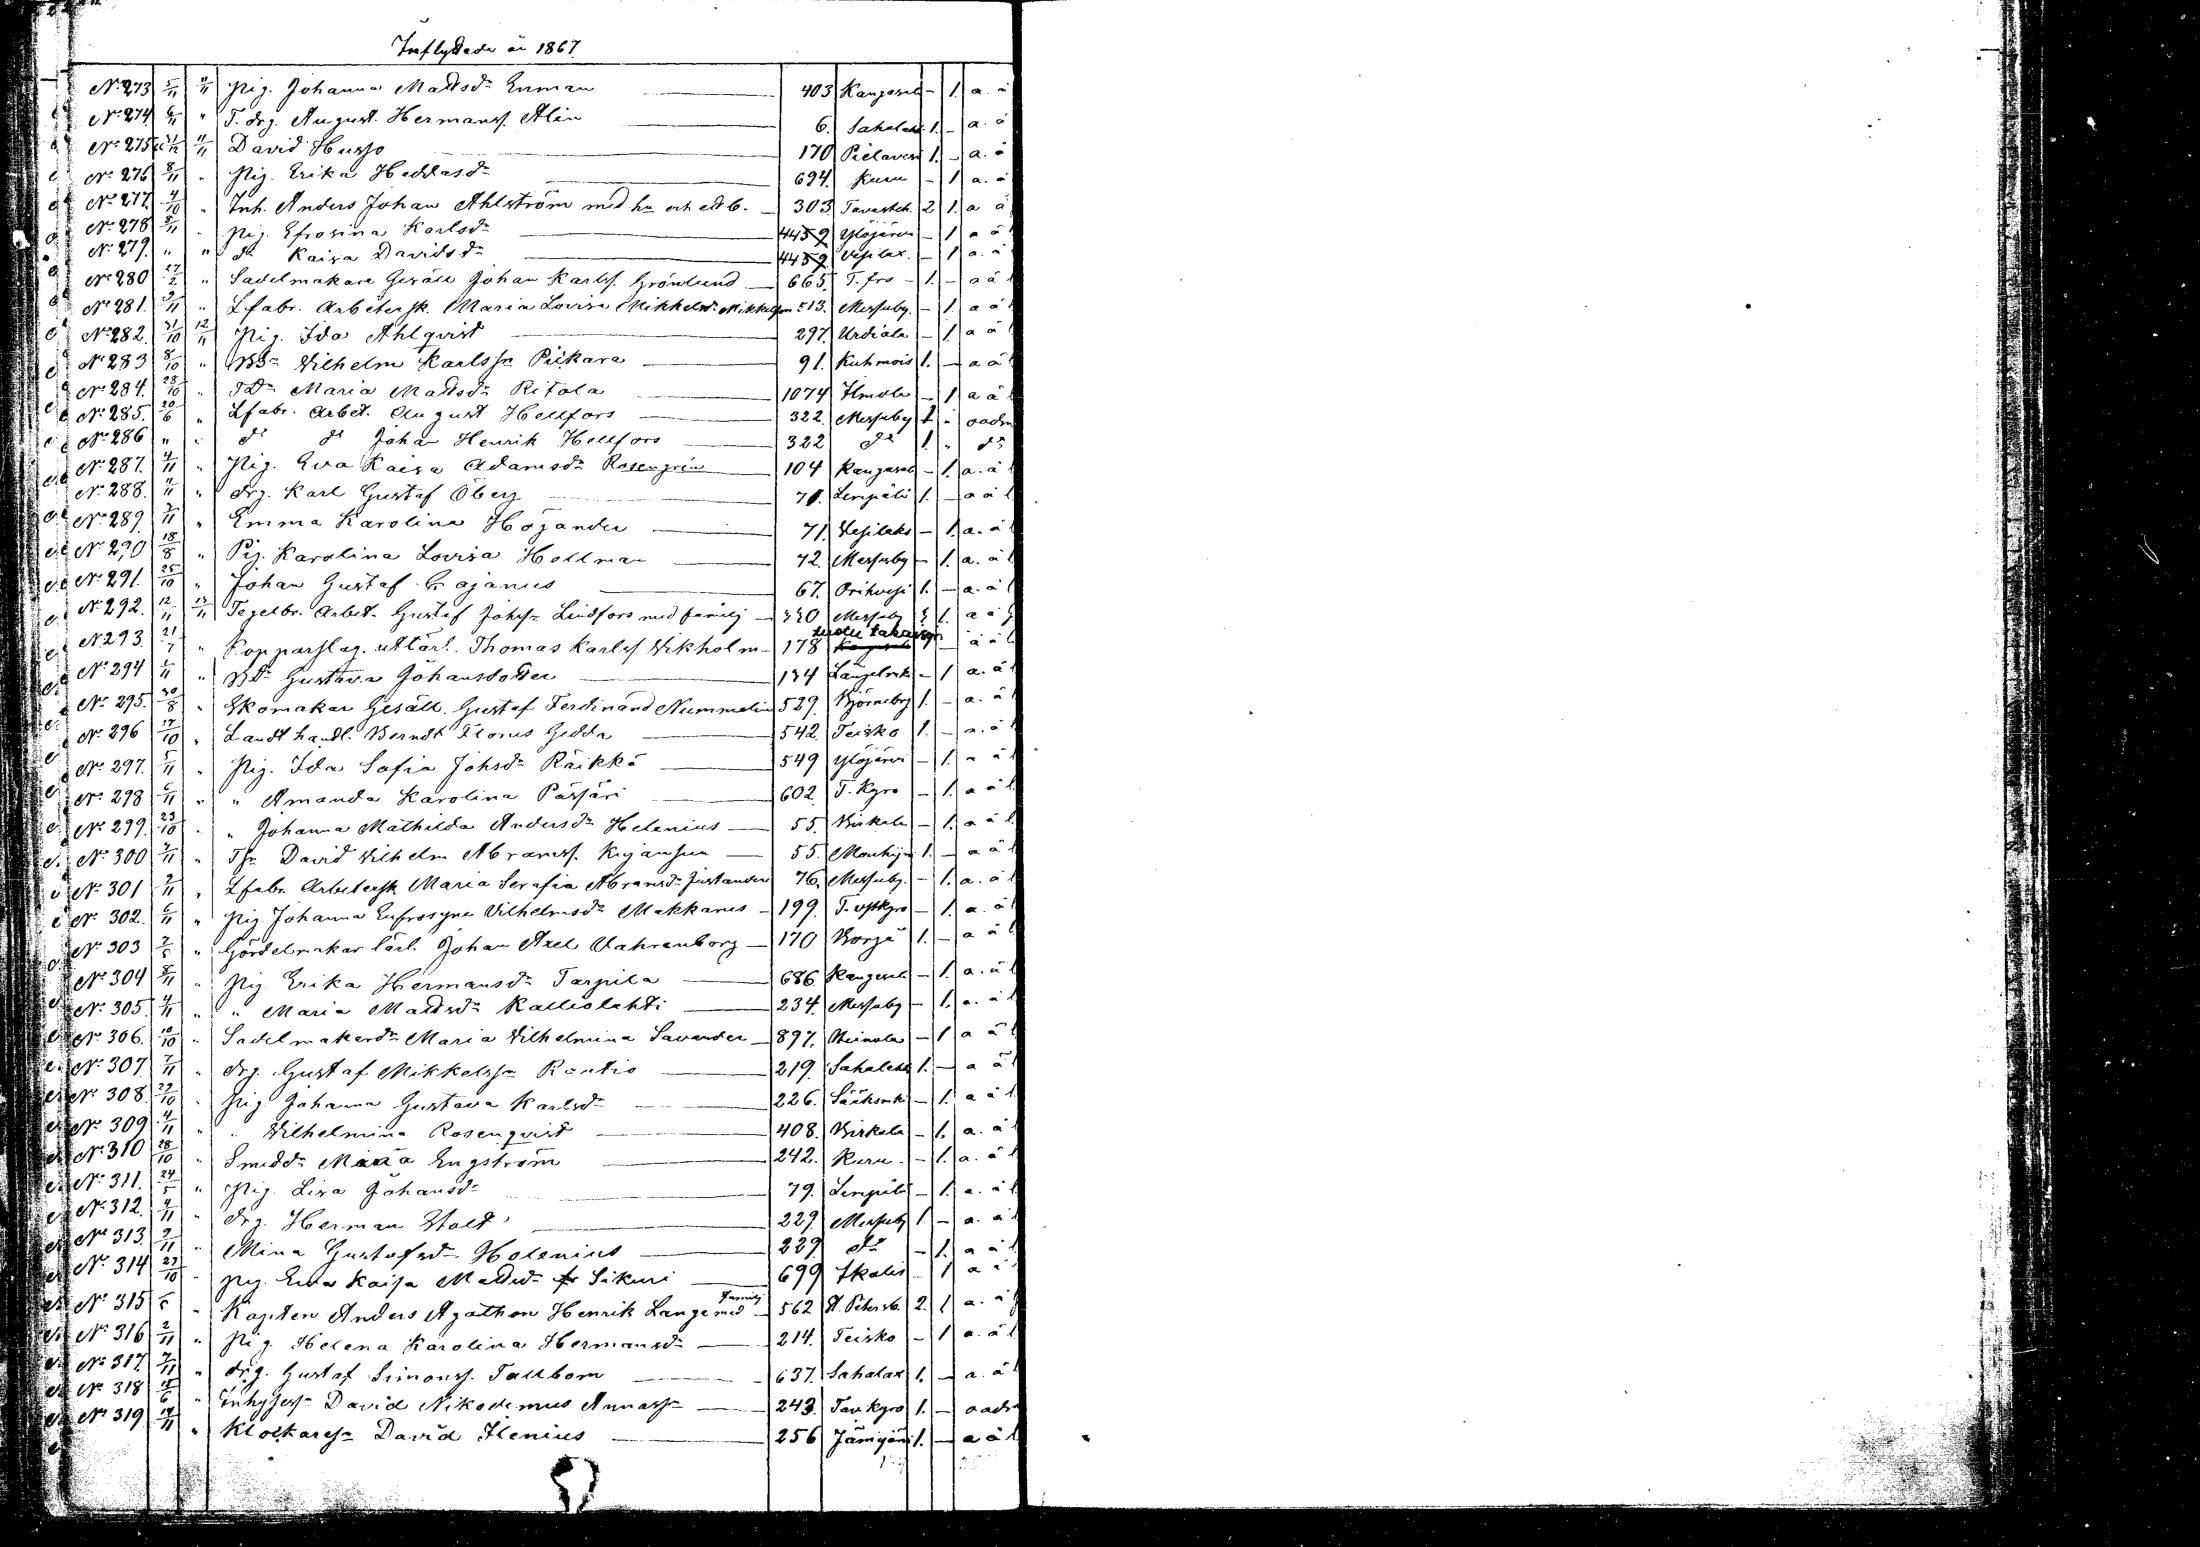 Inflyttade år 1867.
No 273 5/11 11/11 Pig. Johanna Mattsdr Enman 403 Kangasal - 1. a. å
No 274 6/11 " T. drg. August Hermanss. Alin 6. Sahalaks 1. - a. å
No 275 11/11 David Husso 170 Pielaves 1. - a. å
No 276 8/11 " Pig. Erika Heddasdr 694. Kuru - 1 a. å
No 277 4/10 " Inh. Anders Johan Ahlström med hu och ett b. 303 Tavasteh. 2 1. a å
No 278 8/11 " Pig. Efrosina Karlsdr 4459 Ylöjärvi - 1 a å
No 279. " " do Kaisa Davidsdr 4459 Vesilax. - 1 a. å
No 280 27/2 " Sadelmakare Gesäll Johan Karlss. Grönlund 665. T. fors - 1. - a å l
No 281. 9/11 " Lfabr. Arbetersk. Maria Lovisa Mikkelsdr Mikkelson 513. Messuby. - 1. a å l
No 282. 31/10 12/11 Pig. Ida Ahlqvist 297. Urdiala - 1 a å l
No 283 8/10 " Bdsn Vilhelm Karlsson Piikara 91. Kuhmois 1. - a å l
No 284. 28/10 " Tdr Maria Mattsdr Ritola 1074 Ilmola - 1 a å l
No 285. 20/6 " Lfabr. Arbet. August Hellfors 322. Messuby 1 - oadm
No 286 " " do do Johan Henrik Hellfors 322 do 1. " do
No 287. 4/11 " Pig. Eva Kaisa Adamsdr Rosengrén 104 Kangasal - 1. a. å l
No 288. 11/11 " drg. Karl Gustaf Öberg 71. Lempälä 1. - a å l
No 289. 7/11 " Emma Karolina Högander 71. Vesilaks - 1. a. å l
No 290 18/8 " Pig. Karolina Lovisa Hollman 72. Messuby - 1. a. å l
No 291. 25/10 " Johan Gustaf Cajanus 67. Orihvesi 1. - a. å l
No 292. 12/11 13/11 Tegelbr. Arbet. Gustaf Johss. Lindfors med familj 330 Messuby 1. a å
No 293. 21/7 " Kopparslag. utlärl. Thomas Karlss. Vikholm 178 1 - a å l
No 294 5/11 " Bdr Gustava Johansdotter 134 Längelmk - 1 a. å l
No 295. 30/8 " Skomakar Gesäll. Gustaf Ferdinand Nummelin 529. Björneborg 1. - a. å l
No 296 17/10 " Landthandl. Berndt Florus Gedda 542. Teisko 1. - a. å l
No 297. 5/11 " Pig. Ida Sofia Johsdr Räikkä 549 Ylöjärvi - 1. a å l
No 298 6/11 " " Amanda Karolina Pässäri 602. T. Kyro - 1. a å l
No 299. 23/10 " " Johanna Mathilda Andersdr Helenius 55. Birkala - 1. a å l
No 300 7/11 " Tsn David Vilhelm Abramss. Kujansuu 55. Mouhij 1. - a å l
No 301 2/11 " Lfabr. Arbetersk. Maria Serafia Abramsdr Justander 76. Messuby. - 1. a. å l
No 302. 6/11 " Pig. Johanna Eufrosyne Vilhelmsdr Makkanus 199. T. - 1. a. å l
No 303 " Gördelmakar lärl. Johan Axel Vahrenborg 170 Borgå 1. - a å l
No 304 8/11 " Pig. Erika Hermansdr Tarpila 686 Kangasal - 1. a. å l
No 305. 4/11 " " Maria Mattsdr Kalliolahti 234. Messuby - 1. a. å l
No 306. 10/10 " Sadelmakardr Maria Vilhelmina Savander 897. Heinola - 1 a å l
No 307. 7/11 " drg. Gustaf Mikkelsson Rautio 219. Sahalaks 1. - a å l
No 308. 29/10 " Pig. Johanna Gustava Karlsdr 226. Sääksmk - 1. a å l
No 309. 4/11 " " Vilhelmina Rosenqvist 408. Birkala - 1. a. å l
No 310 28/10 " Smeddr Maria Engström 242. Kuru - 1. a. å l
No 311. 24/5 " Pig. Lisa Johansdr 79. Lempälä - 1. a. å l
No 312. 9/11 " drg. Herman Stolt 229. Messuby 1. - a. å l
No 313. 9/11 " Mina Gustafsdr Holenius 229. do - 1. a å l
No 314 29/10 " Pig. Eva Kaisa Mattsdr Sikuri 699 Ikalis - 1 a å
No 315 " Kapten Anders Agathon Henrik Lange med familj 562 St. Petersb. 2. 1 a. å
No 316 2/11 " Pig. Helena Karolina Hermansdr 214. Teisko - 1 a. å l
No 317. 7/11 " drg. Gustaf Simonss. Tallbom 637. Sahalax 1. - a. å l
No 318 15/6 " Inhysess. David Nikodemus Annasson 243. Tav. Kyro 1. - oadm
No 319 14/11 " Klockaress. David Ilenius 256 Jämijärvi 1. - a å l